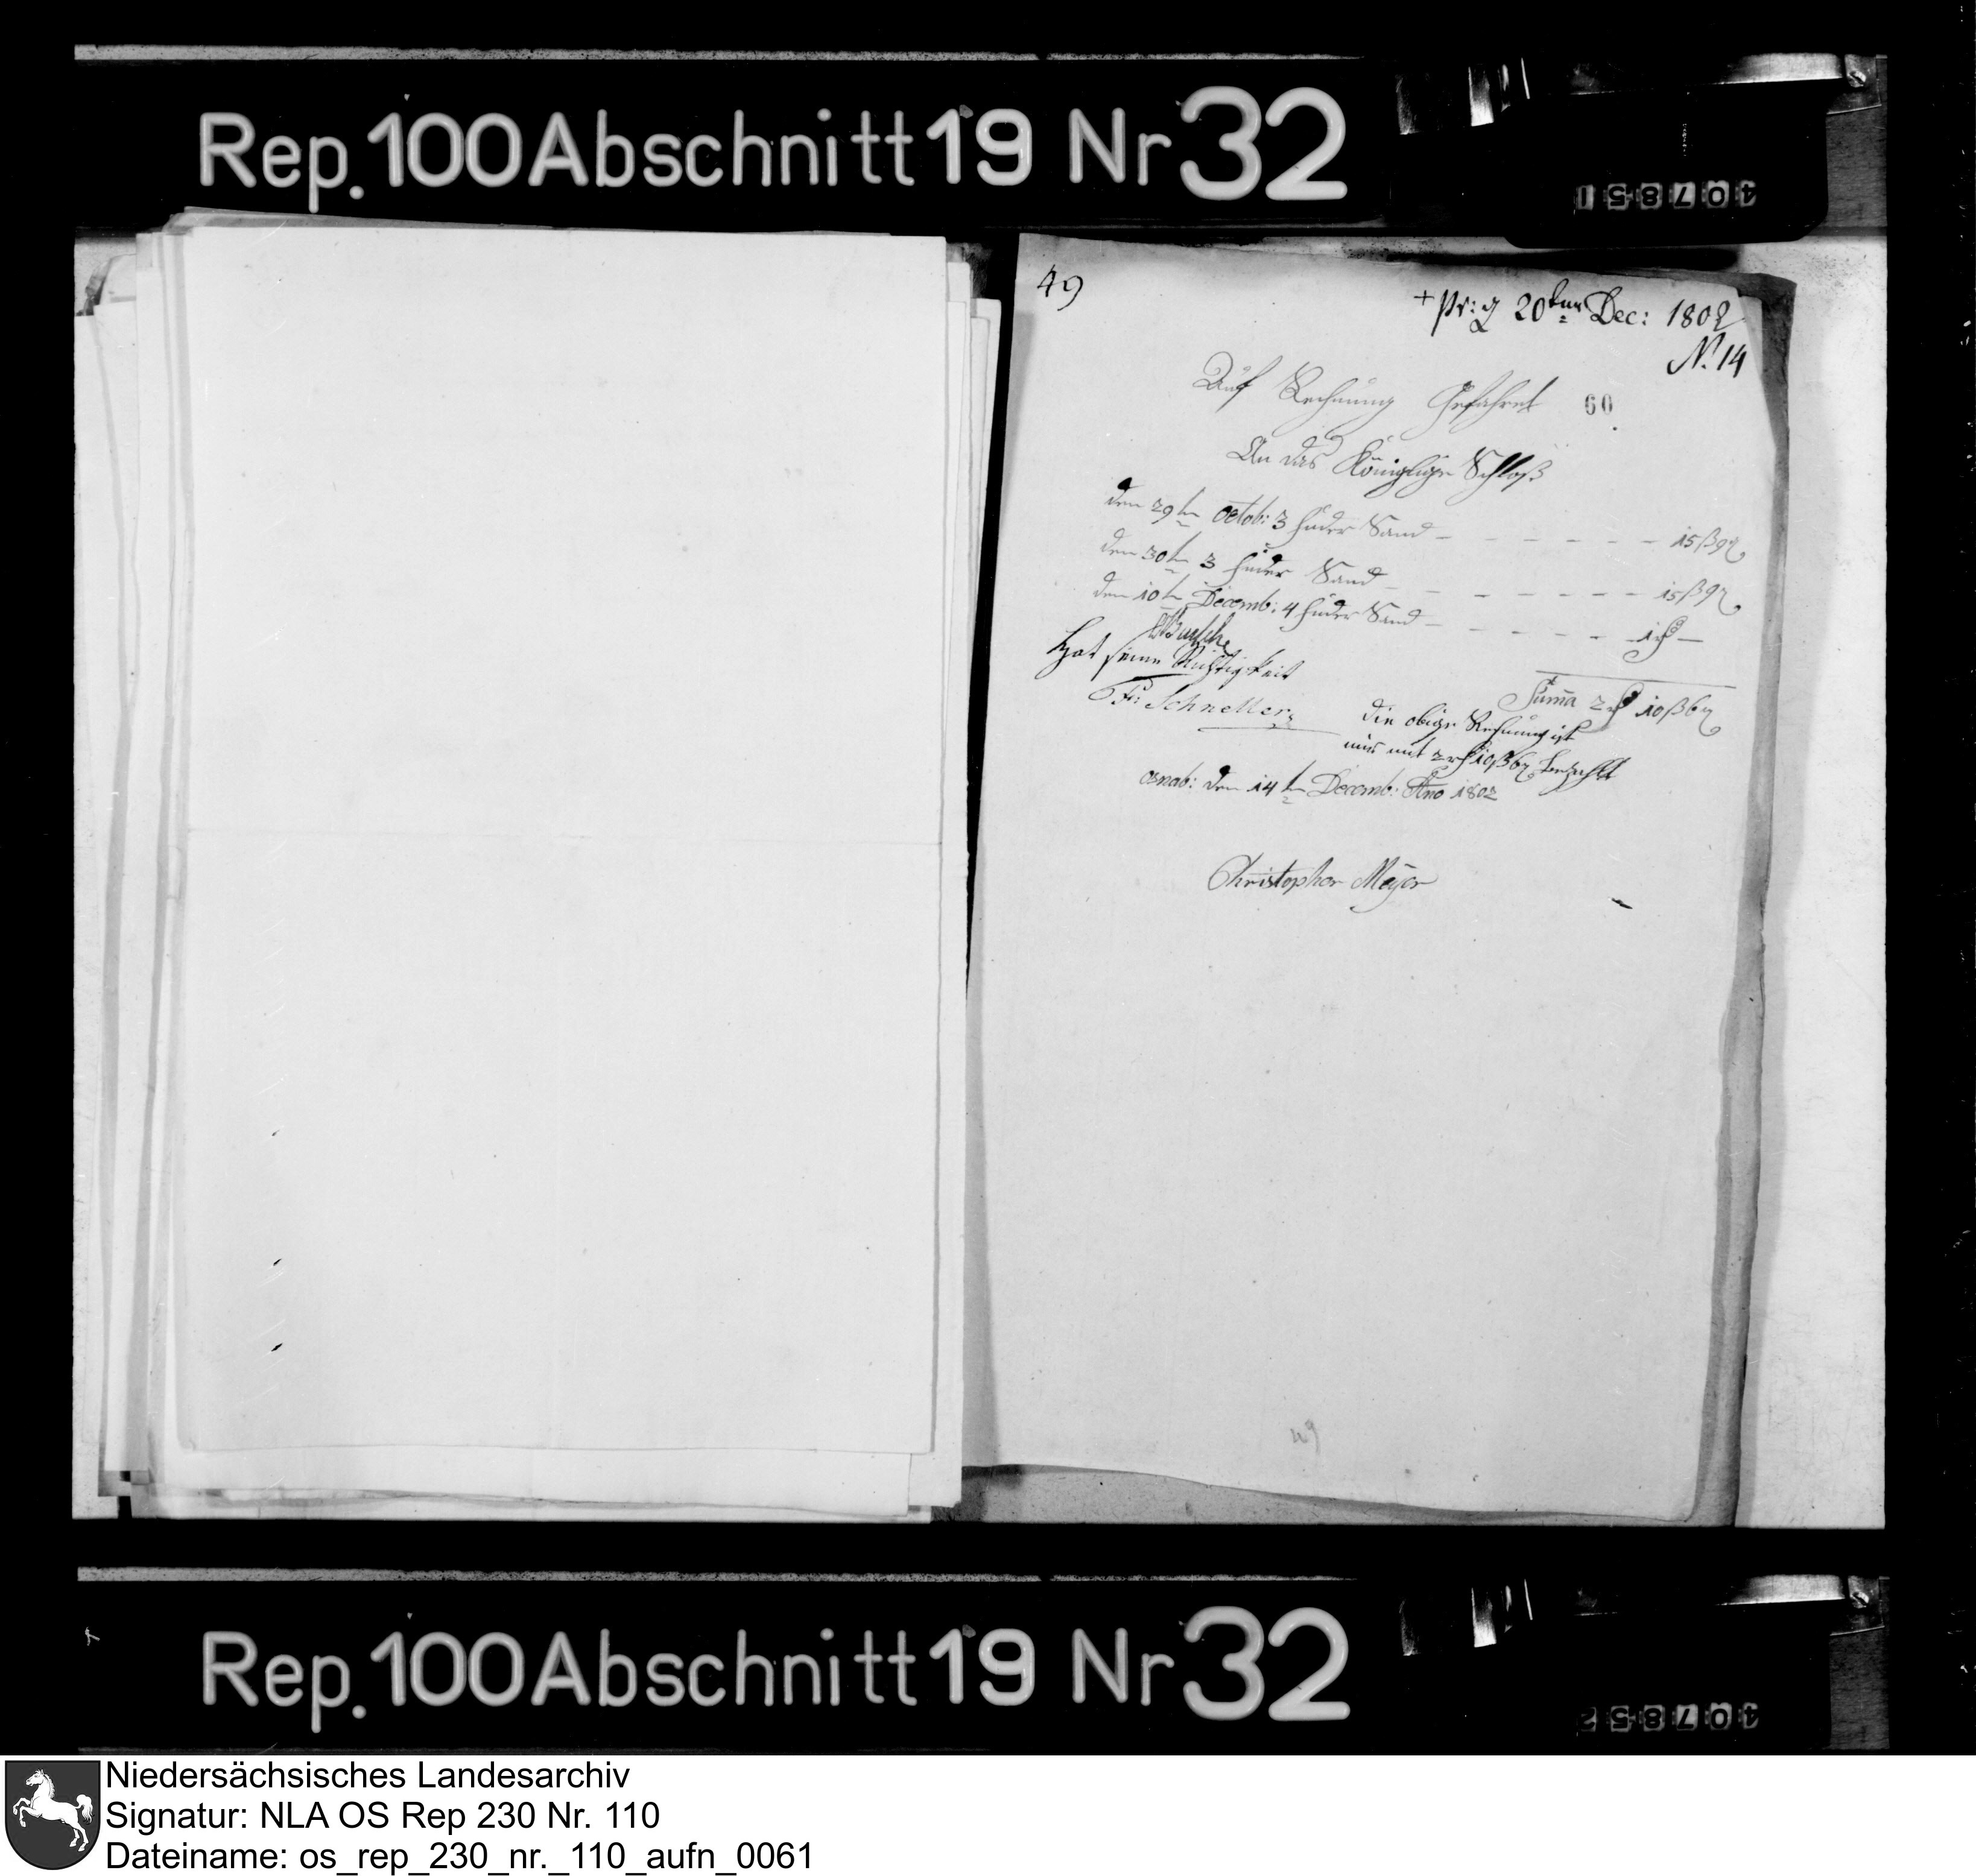 Rep. 100 Abschnitt 19 Nr 32
407851
49
+ Pr: d 20ten Dec: 1802
N. 14
Auf Rechnung Gefahret
60
An das Königlige Schloß
den 29tn Octob: 3 fuder Sand - - - - - - 15 ß 9 ₰
den 30tn 3 fuder Sand - - - - - - 15 ß 9 ₰
den 10tn Decemb: 4 fuder Sand - - - - - 1 rth —
WBusche
Hat seine Richtigkeit
Fr: Schneller
Sum̄a 2 rth 10 ß 6 ₰
die obige Rechnung ist
mir mit 2 rth 10 ß 6 ₰ bezahlt
osnab: den 14tn Decemb: Ano 1802
Christopher Meyer
49
Rep. 100 Abschnitt 19 Nr 32
407852
Niedersächsisches Landesarchiv
Signatur: NLA OS Rep 230 Nr. 110
Dateiname: os_rep_230_nr._110_aufn_0061